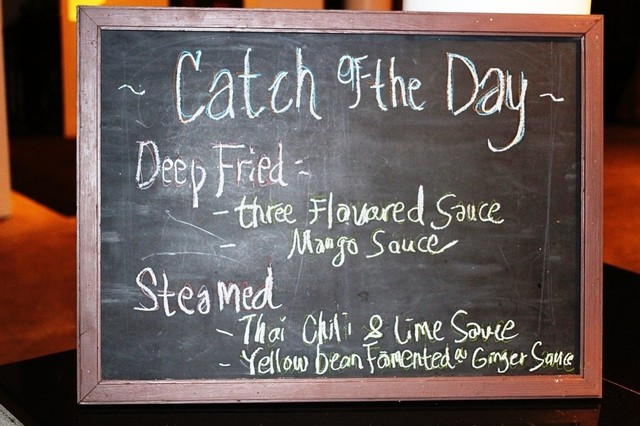 ~ Catch of the Day ~
Deep Fried:
- three Flavoured Sauce
- Mango Sauce
Steamed
- Thai Chili & Lime Sauce
- Yellow bean Famented & Ginger Sauce